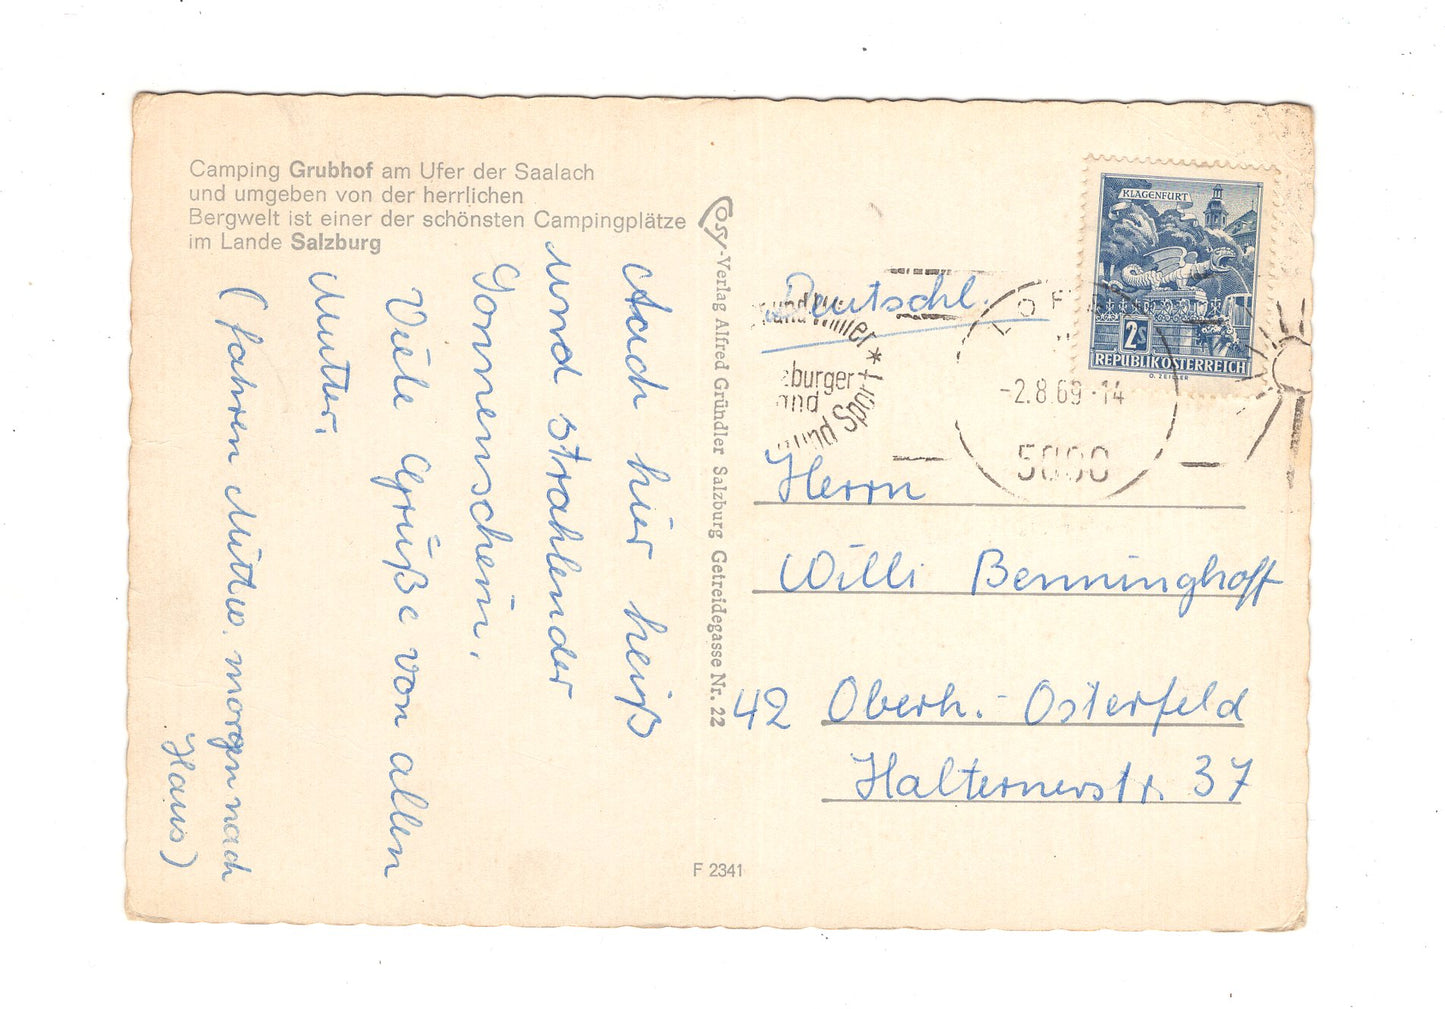 Camping Grubhof am Ufer der Saalach
und umgeben von der herrlichen
Bergwelt ist einer der schönsten Campingplätze
im Lande Salzburg
Auch hier heiß
und strahlender
Sonnenschein.
Viele Grüße von allen
Mutter.
(fahren Mittw. morgen nach
Haus)
Cosy-Verlag Alfred Gründler Salzburg Getreidegasse Nr. 22
F 2341
KLAGENFURT
2S
REPUBLIK ÖSTERREICH
O. ZEILER
LOFER
-2.8.69-14
5090
und Winter *
zburger
and
und Sport
Deutschl.
Herrn
Willi Benninghoff
42 Oberh.-Osterfeld
Halternerstr. 37